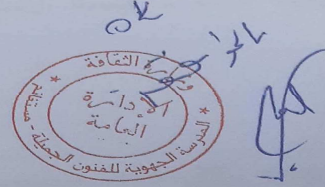 وزارة الثقافة
الإدارة
العامة
* المدرسة الجهوية للفنون الجميلة - مستغانم *